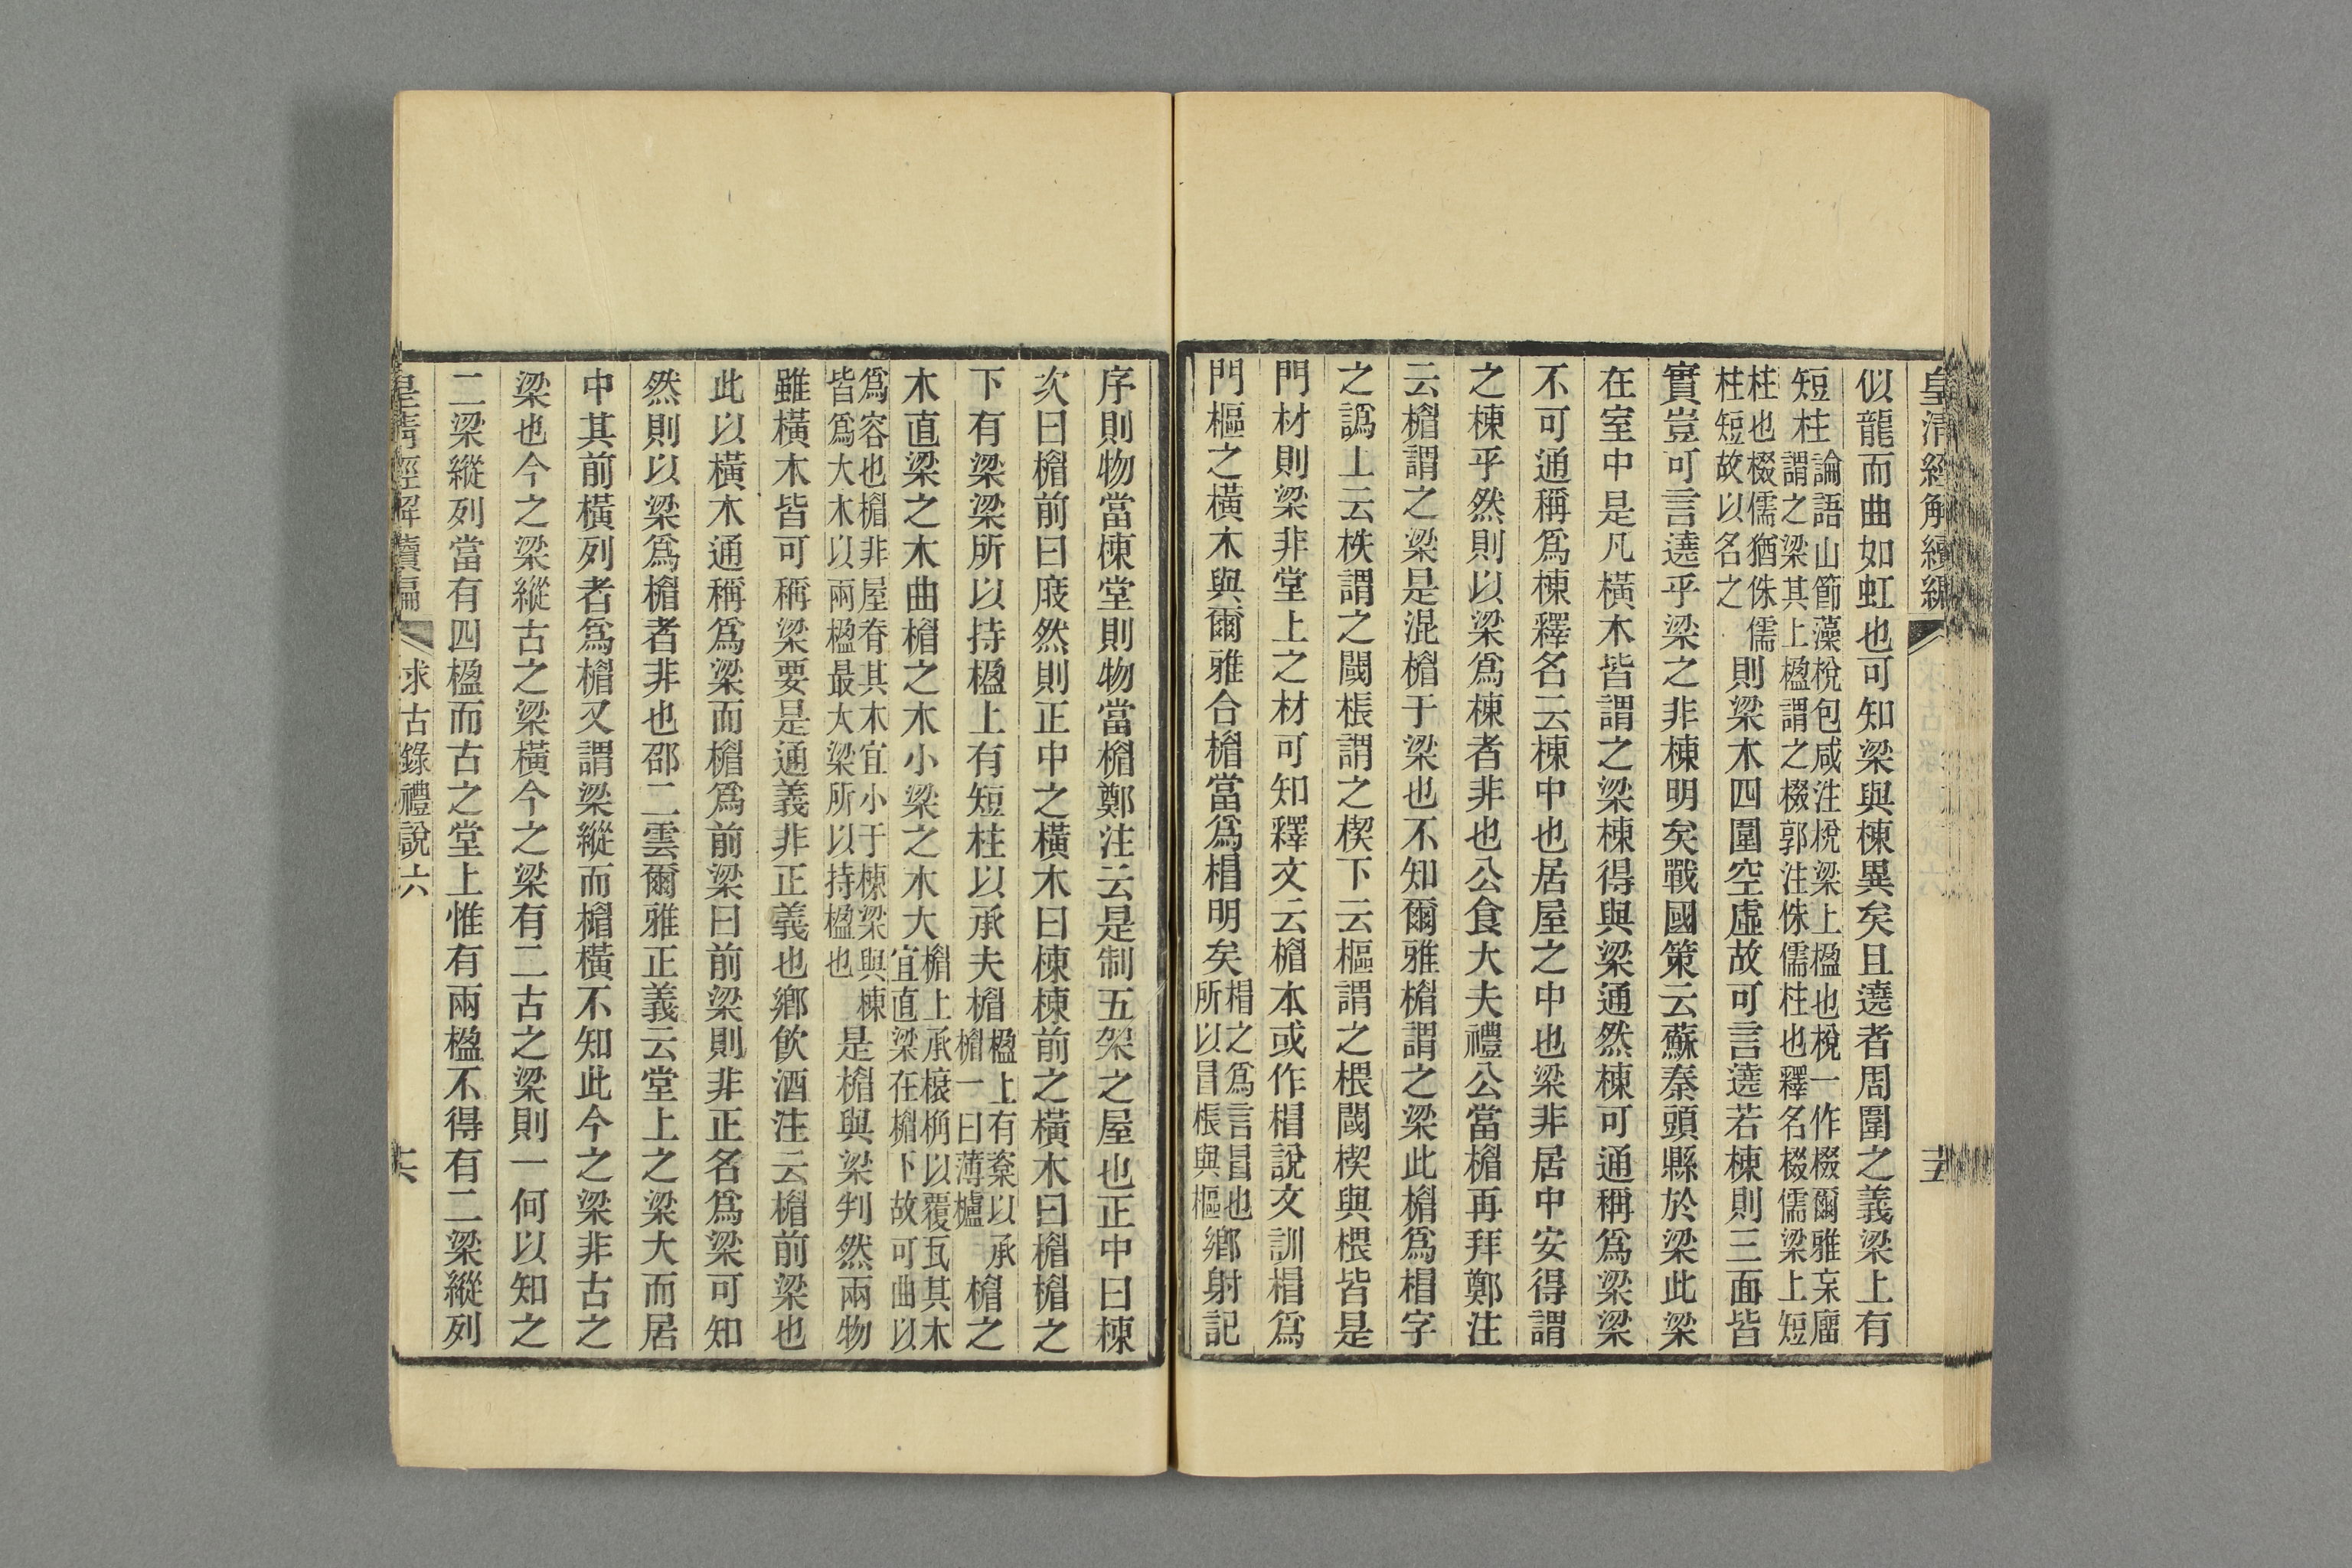 皇清經解續編
似龍而曲如虹也可知梁與棟異矣且遶者周圍之義梁上有
短柱論語山節藻梲包咸注梲梁上楹也梲一作棳爾雅杗廇
謂之梁其上楹謂之棳郭注侏儒柱也釋名棳儒梁上短
柱也棳儒猶侏儒
柱短故以名之
則梁木四圍空虛故可言遶若棟則三面皆
實豈可言遶乎梁之非棟明矣戰國策云蘇秦頭縣於梁此梁
在室中是凡橫木皆謂之梁棟得與梁通然棟可通稱爲梁梁
不可通稱爲棟釋名云棟中也居屋之中也梁非居中安得謂
之棟乎然則以梁爲棟者非也公食大夫禮公當楣再拜鄭注
云楣謂之梁是混楣于梁也不知爾雅楣謂之梁此楣爲梠字
之譌上云柣謂之閾棖謂之楔下云樞謂之椳閾楔與椳皆是
門材則梁非堂上之材可知釋文云楣本或作梠說文訓梠爲
門樞之橫木與爾雅合楣當爲梠明矣
梠之爲言冒也
所以冒棖與樞
鄉射記
序則物當棟堂則物當楣鄭注云是制五架之屋也正中曰棟
次曰楣前曰庪然則正中之橫木曰棟棟前之橫木曰楣楣之
下有梁梁所以持楹上有短柱以承夫楣
楹上有楶以承
楣一曰薄櫨
楣之
木直梁之木曲楣之木小梁之木大
楣上承榱桷以覆瓦其木
宜直梁在楣下故可曲以
爲容也楣非屋脊其木宜小于棟梁與棟
皆爲大木以兩楹最大梁所以持楹也
是楣與梁判然兩物
雖橫木皆可稱梁要是通義非正義也鄉飲酒注云楣前梁也
此以橫木通稱爲梁而楣爲前梁曰前梁則非正名爲梁可知
然則以梁爲楣者非也邵二雲爾雅正義云堂上之梁大而居
中其前橫列者爲楣又謂梁縱而楣橫不知此今之梁非古之
梁也今之梁縱古之梁橫今之梁有二古之梁則一何以知之
二梁縱列當有四楹而古之堂上惟有兩楹不得有二梁縱列
皇清經解續編
求古錄禮說六